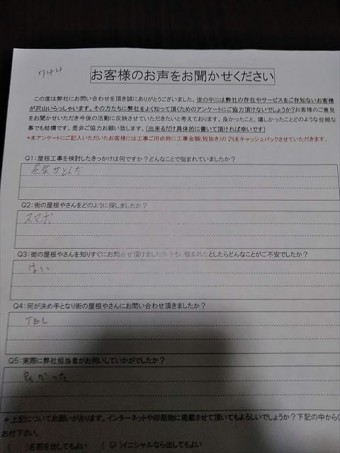 お客様のお声をお聞かせください
この度は弊社にお問い合わせを頂き誠にありがとうございました。世の中には弊社の存在やサービスをご存知ないお客様
が沢山いらっしゃいます。その方たちに弊社をよく知って頂くためのアンケートにご協力頂けないでしょうか?お客様のご意見
をお聞かせいただき今後の活動に反映させていただきたいと考えております。良かったこと、嬉しかったことどのような些細な
事でも結構です。是非ご協力お願い致します。(出来るだけ具体的に書いて頂ければ幸いです)
*本アンケートにご記入いただいたお客様には工事ご用命時に工事金額(税抜き)の2%をキャッシュバックさせていただきます。
Q1:屋根工事を検討したきっかけは何ですか?どんなことで悩まれていましたか?
Q2:街の屋根やさんをどのように探しましたか?
スマホ
Q3:街の屋根やさんを知りすぐにお問合せ頂けましたか?もし悩まれたとしたらどんなことがご不安でしたか?
はい
Q4:何が決め手となり街の屋根やさんにお問い合わせ頂きましたか?
TEL
Q5:実際に弊社担当者がお伺いしていかがでしたか?
良かった
*上記についてお願いがあります。インターネットや印刷物に掲載させて頂いてもよろしいでしょうか?下記の中から○
お付け下さい。
名前を出してもよい ( ○ )イニシャルなら出してもよい